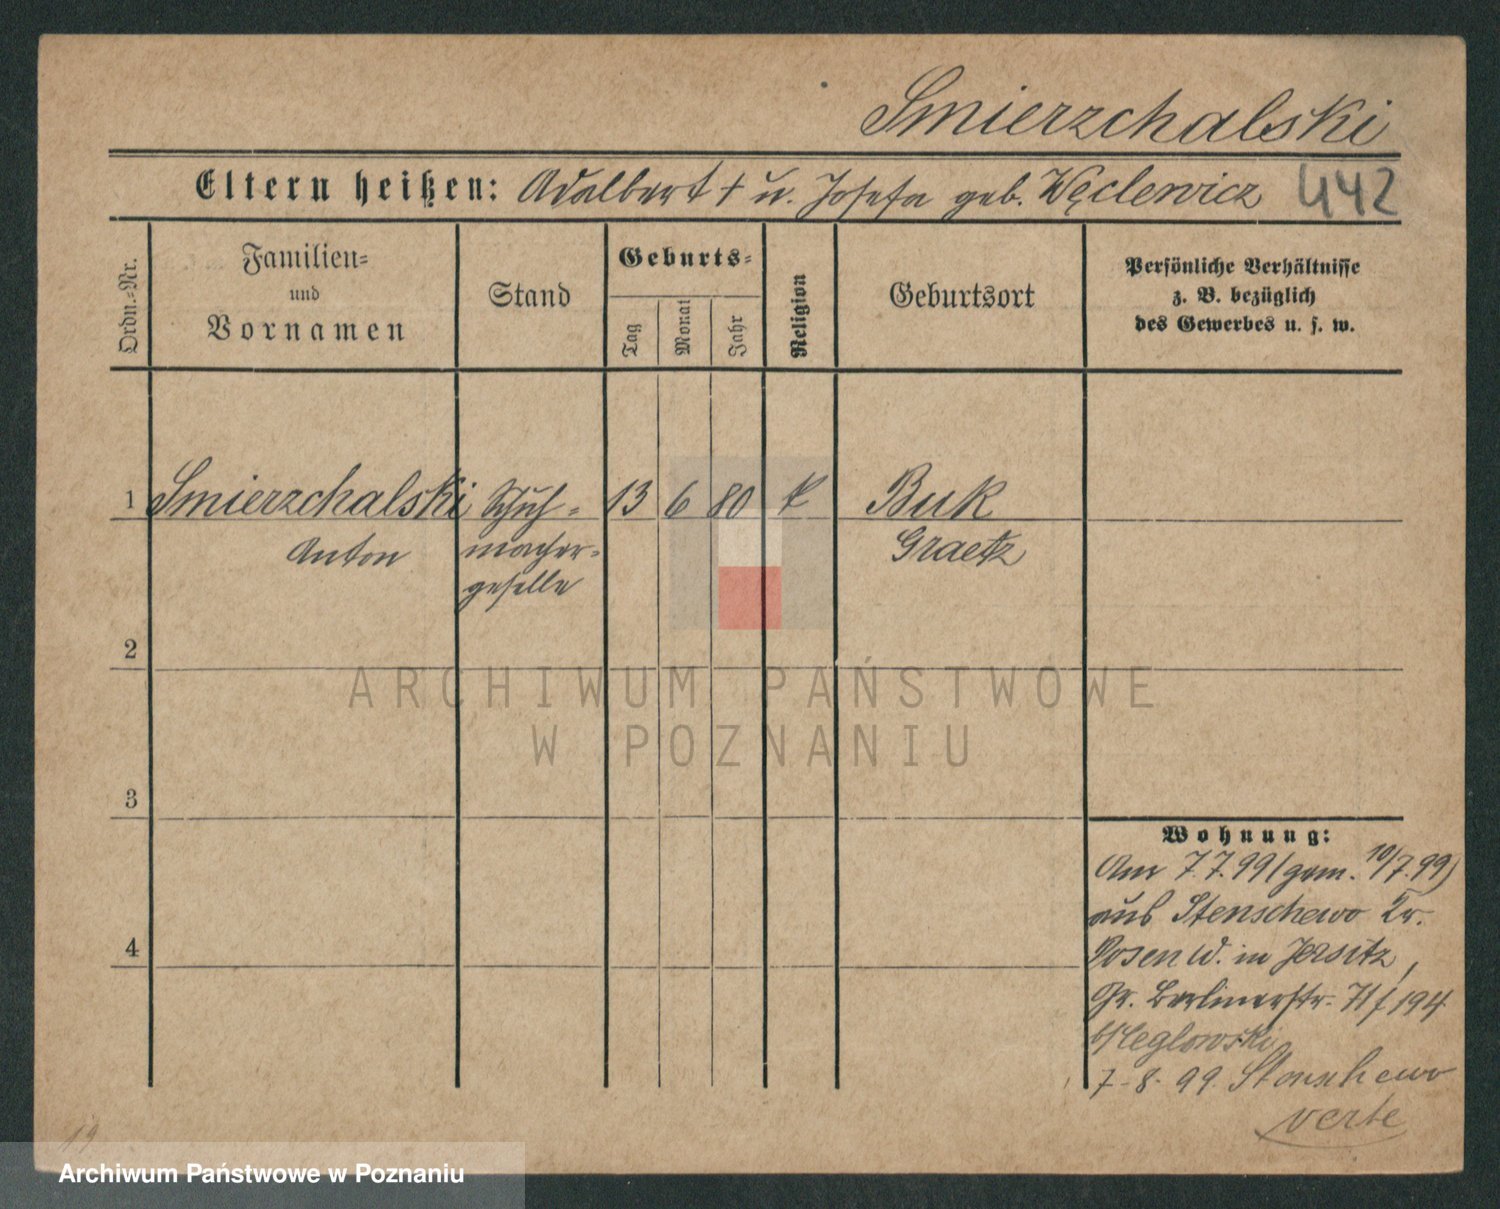 Smierzchalski
Eltern heißen: Adalbert + u. Josefa geb. Węclewicz 442
Ordn.=Nr.
Familien=
und
Vornamen
Stand
Geburts=
Tag
Monat
Jahr
Religion
Geburtsort
Persönliche Verhältnisse
z. B. bezüglich
des Gewerbes u. s. w.
1 Smierzchalski Schuh= 13 6 80 k Buk
Anton macher= Graetz
geselle
2
ARCHIWUM PAŃSTWOWE
W POZNANIU
3
Wohnung:
Am 7.7.99 (gem. 10/7.99)
aus Stenschewo Kr.
4
Posen W. in Jersitz,
Gr. Berlinerstr. 71/194
b/Ceglowski
7-8-99. Stenschewo
verte
19
Archiwum Państwowe w Poznaniu